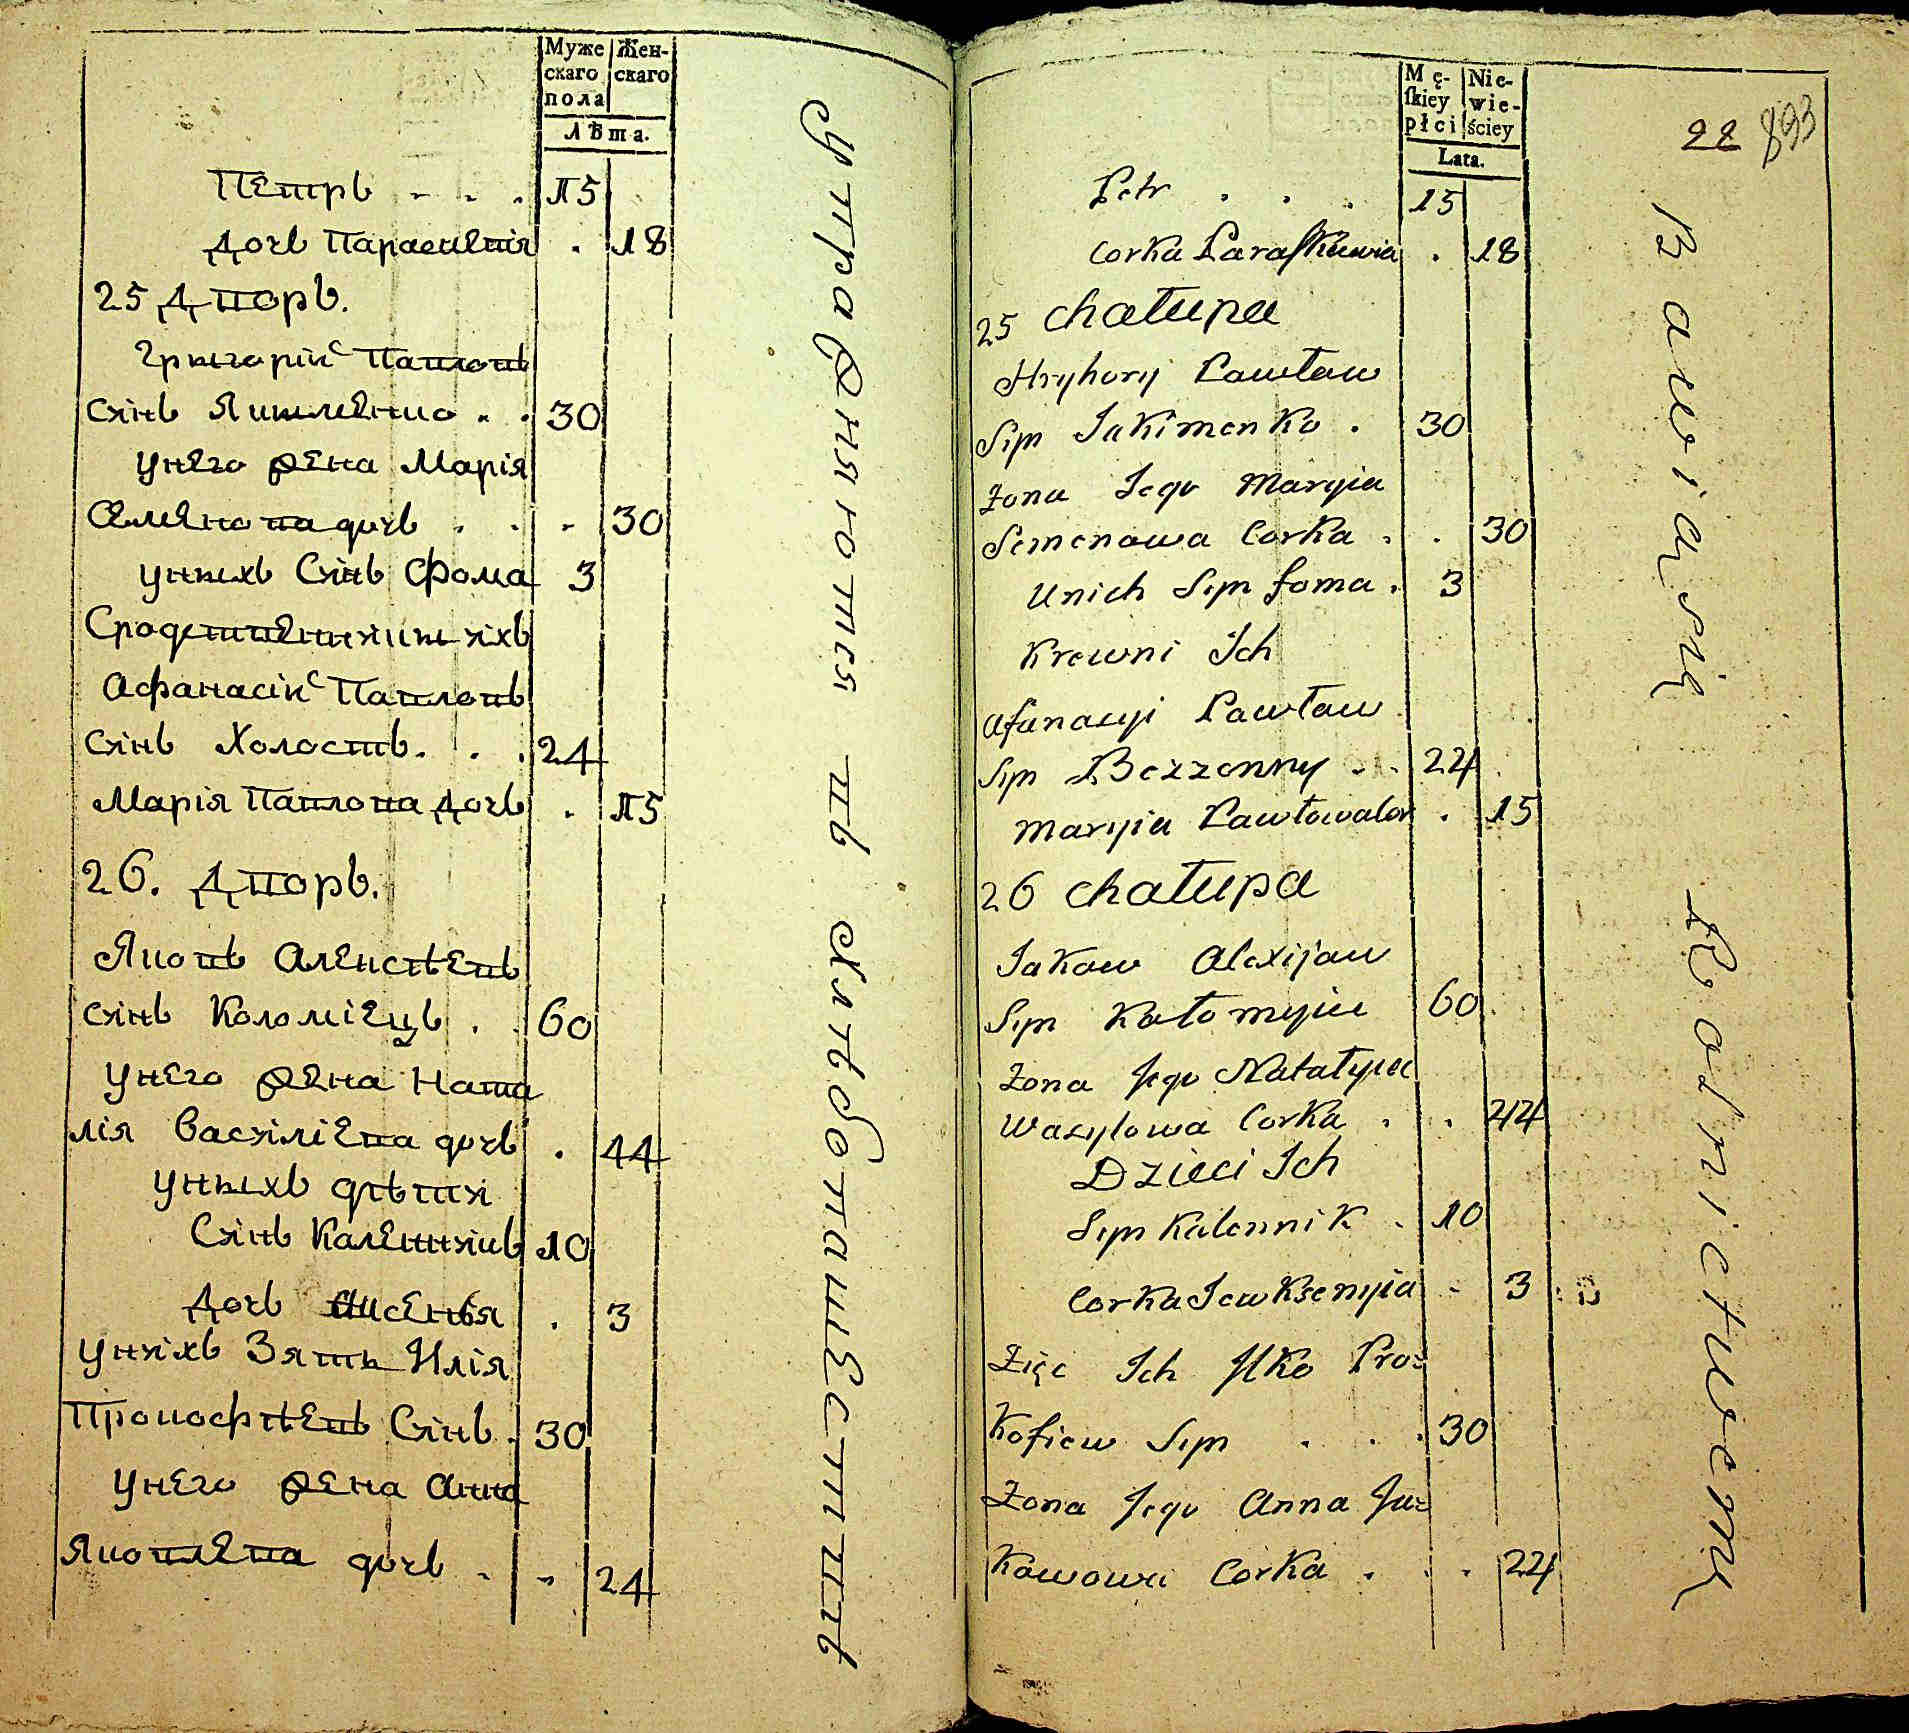 Муже
скаго
пола
Жен-
скаго
Лѣта.
Петръ . . . 15
дочь Парасковія . 18
25 Дворъ.
Григорій Павловъ
Синъ Якименко . . 30
У него жена Марія
Семенова дочь . . . 30
У нихъ Синъ Фома 3
Сродственники ихъ
Афанасій Павловъ
синъ Холостъ . . . 24
Марія Павлова дочь . 15
26. Дворъ.
Яковъ Алексѣевъ
синъ Коломіецъ . . 60
У него жена Ната
лія Василіева дочь . 44
У нихъ дѣти
Синъ Каленникъ 10
Дочь Ксенія . 3
У нихъ Зять Илія
Прокофѣевъ Синъ . 30
У него жена Анна
Яковлева дочь . . 24
упражняются въ хлѣбопашествѣ
Mę-
skiey
płci
Nie-
wie-
ściey
Lata.
22 893
Petr . . . 15
Corka Paraskiewia . 18
25 Chałupa
Hryhory Pawław
Syn Jakimenko . 30
Zona Jego Maryia
Semenowa Corka . . 30
Unich Syn foma . 3
Krewni Ich
Afanasyi Pawław
Syn Bezzenny . . 24
Maryia Pawłowa Cor . 15
26 Chałupa
Jakow Alexijaw
Syn Kołomyiec 60
Zona Jego Natałyia
Wasylowa Corka . . 44
Dzieci Ich
Syn Kalennik . 10
Corka Ksenyia . 3
Zięc Ich Ilko Pro=
Kofiew Syn . . . 30
Zona Jego Anna Ja=
Kowowa Corka . . . 24
Bawią się Rolnictwem